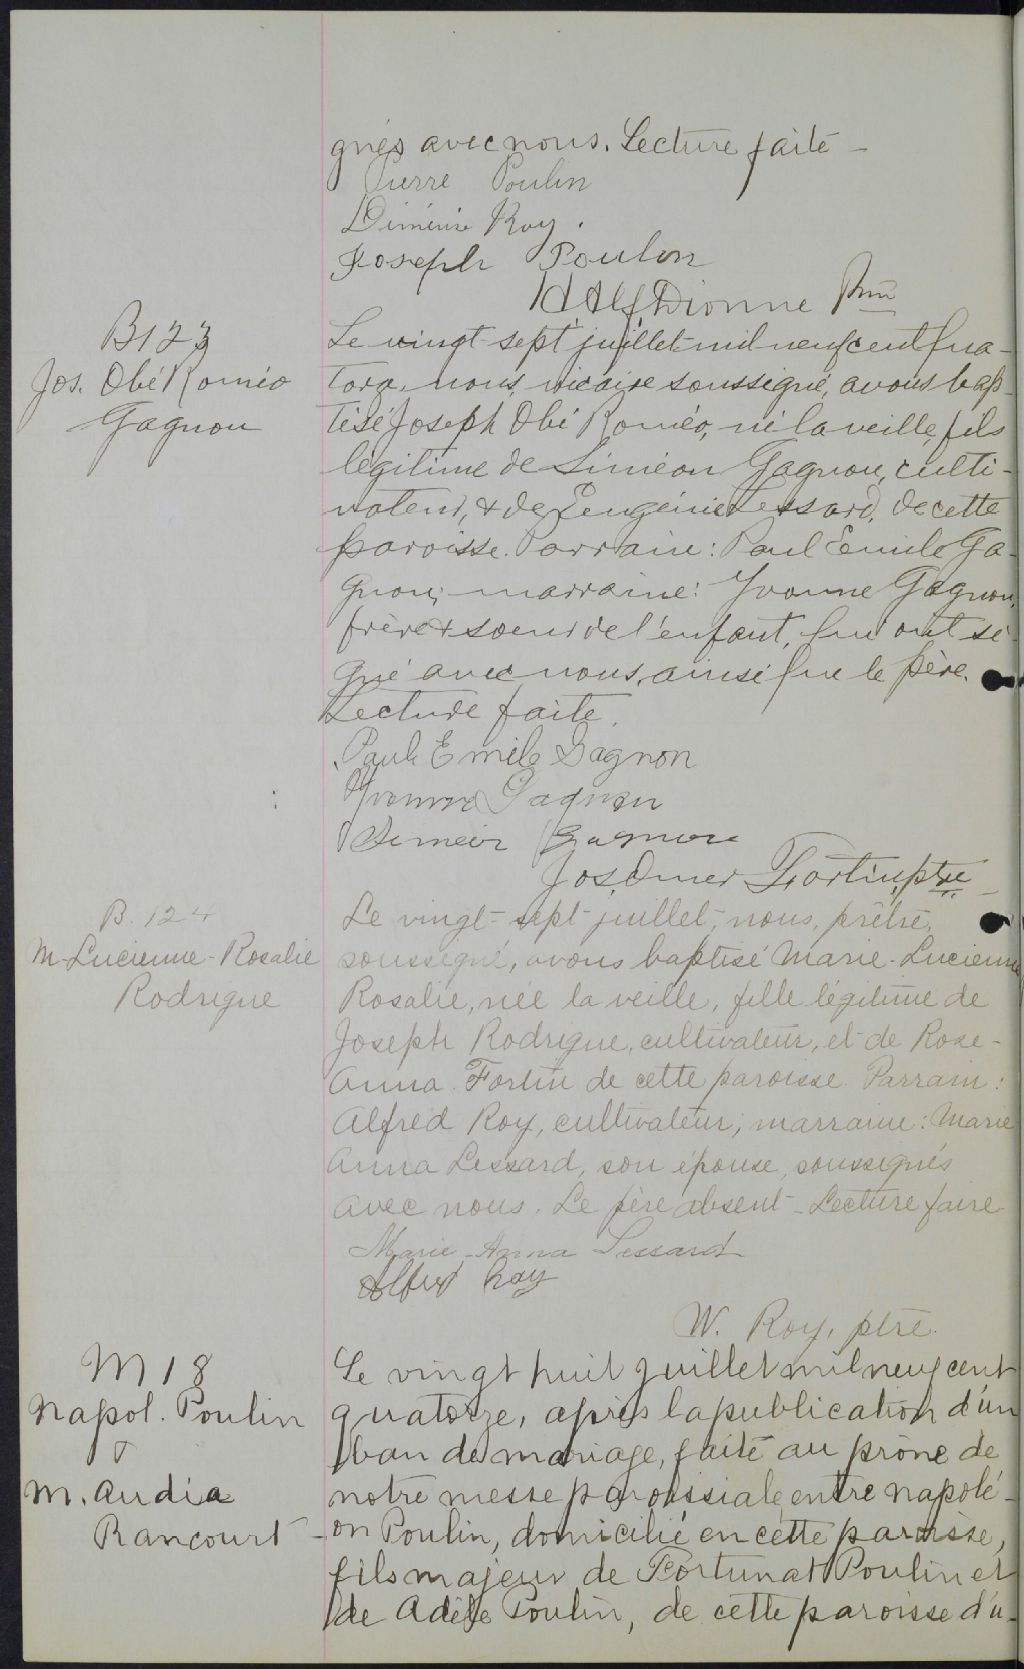 gnés avec nous. Lecture faite -
Pierre Poulin
Diméric Roy.
Joseph Poulin
Alf Dionne Ptre
B123
Jos. Obé Roméo
Gagnon
Le vingt-sept juillet mil neuf cent qua-
torze, nous, vicaire soussigné, avons bap-
tisé Joseph Obé Roméo, né la veille, fils
légitime de Siméon Gagnon, culti-
vateur, & de Eugénie Lessard, de cette
paroisse. Parrain: Paul Emile Ga-
gnon; marraine: Yvonne Gagnon,
frère & soeur de l'enfant, qui ont si-
gné avec nous, ainsi que le père.
Lecture faite.
Paul Emile Gagnon
Yvonne Gagnon
Simeon Gagnon
Jos. Omer Fortin, ptre
B. 124
M-Lucienne-Rosalie
Rodrigue
Le vingt-sept juillet, nous, prêtre,
soussigné, avons baptisé Marie-Lucienne
Rosalie, née la veille, fille légitime de
Joseph Rodrigue, cultivateur, et de Rose-
Anna Fortin de cette paroisse. Parrain:
Alfred Roy, cultivateur; marraine: Marie
Anna Lessard, son épouse, soussignés
avec nous. Le père absent - Lecture faire
Marie-Anna Lessard
Alfred Roy
W. Roy, ptre.
M 18
Napol. Poulin
&
M. Audia
Rancourt -
Le vingt huit juillet mil neuf cent
quatorze, après la publication d'un
ban de mariage, faite au prône de
notre messe paroissiale entre Napolé-
on Poulin, domicilié en cette paroisse,
fils majeur de Fortunat Poulin et
de Adèle Poulin, de cette paroisse d'u-